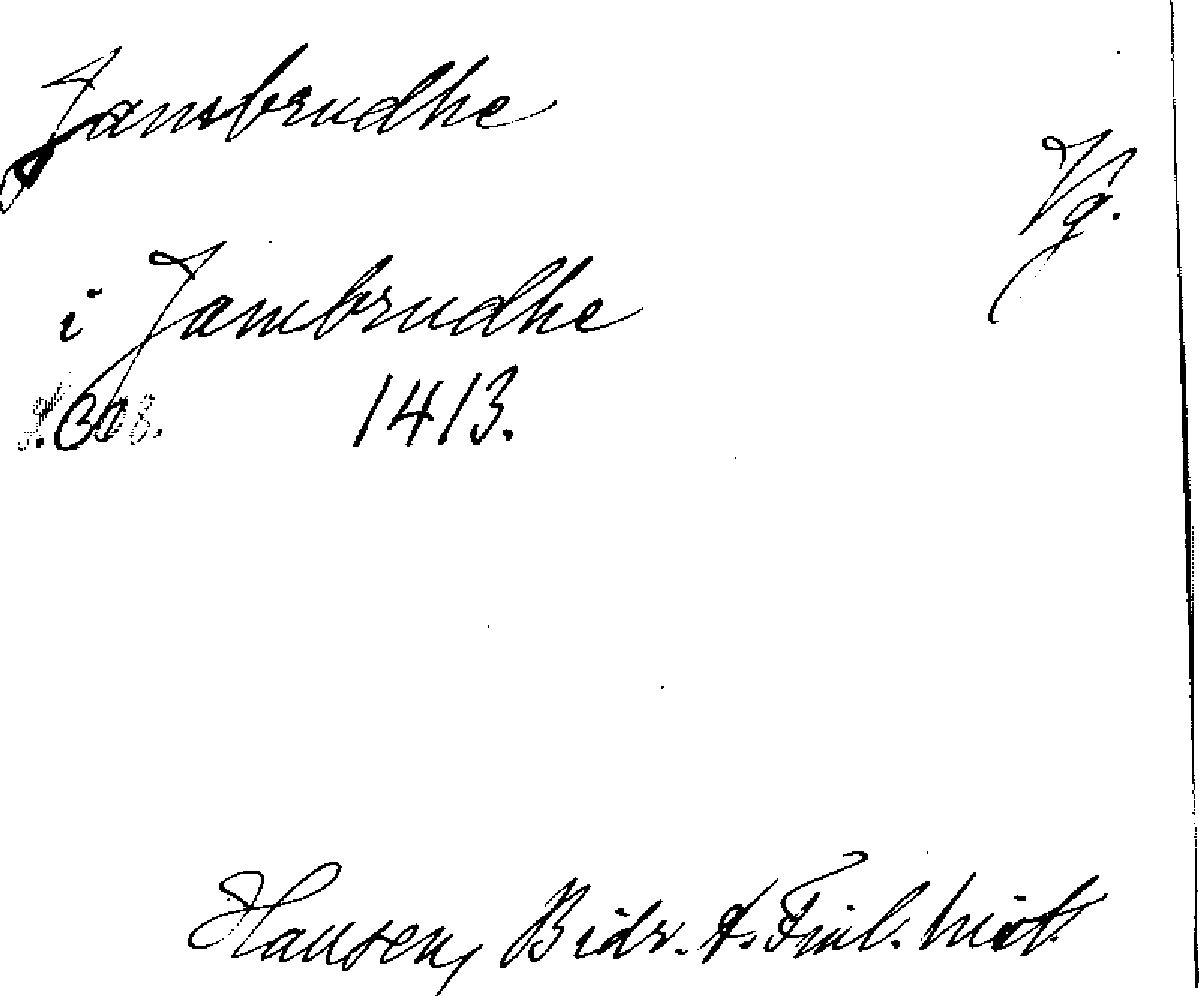 Jamsbrudhe
Vg.
i Jambrudhe
1413.
Hausen, Bidr. t. Finl. hist.